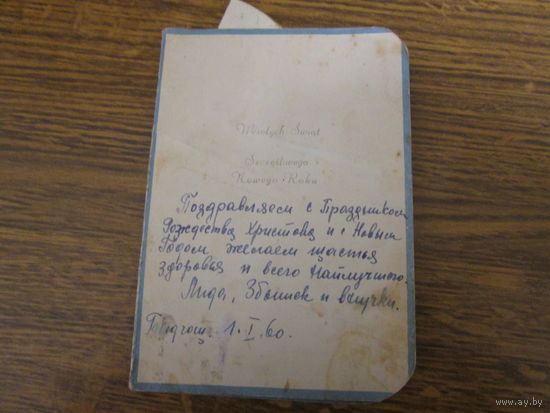 Wesołych Świąt
Szczęśliwego
Nowego Roku
Поздравляем с Праздником
Рождества Христова и с Новым
Годом желаем щастья
здоровья и всего Найлучшего.
Лида, Збышек и внучки.
1. I. 60.
www.ay.by